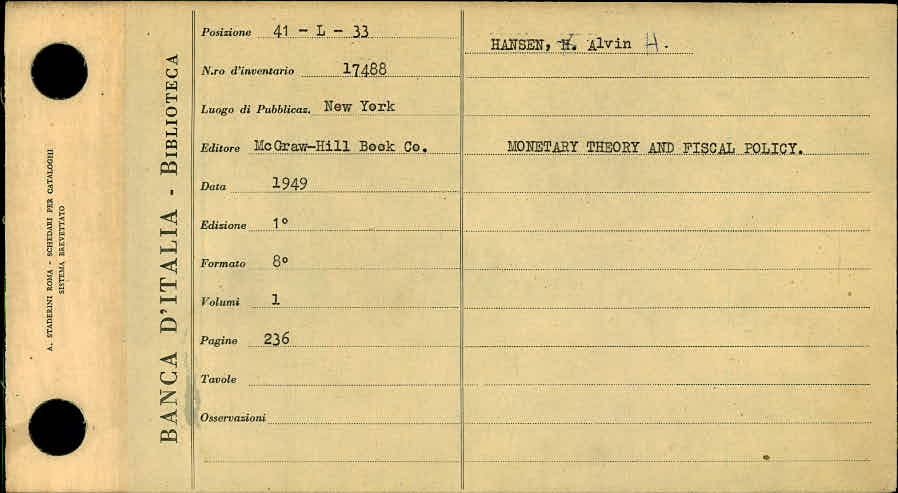 A. STADERINI ROMA - SCHEDARI PER CATALOGHI
SISTEMA BREVETTATO
BANCA D'ITALIA - BIBLIOTECA
Posizione 41 - L - 33
N.ro d'inventario 17488
Luogo di Pubblicaz. New York
Editore McGraw-Hill Book Co.
Data 1949
Edizione 1°
Formato 8°
Volumi 1
Pagine 236
Tavole
Osservazioni
HANSEN, H. Alvin H.
MONETARY THEORY AND FISCAL POLICY.